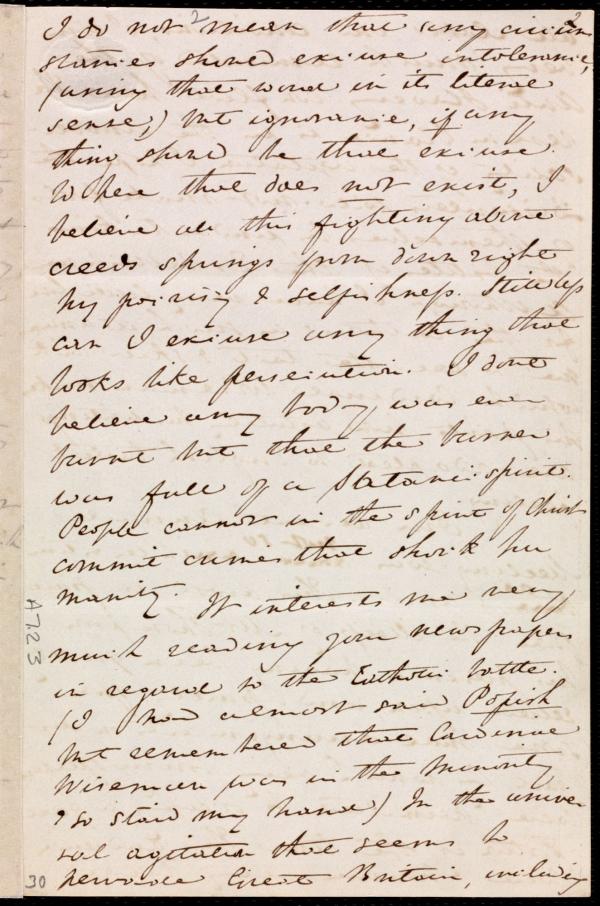 2 2
I do not mean that any circum
stances should excuse intolerance,
(using that word in its literal
sense,) but ignorance, if any
thing should be that excuse.
Where that does not exist, I
believe all this fighting about
creeds springs from down right
hy pocrisy & selfishness. Still less
can I excuse any thing that
looks like persecution. I dont
believe any body was ever
burnt but that the burner
was full of a Satanic spirit.
People cannot in the spirit of Christ
commit crimes that shock hu
manity. It interests me very
much reading your newspapers
in regard to the Catholic battle.
(I had almost said Popish
but remembered that Cardinal
Wiseman was in the minority
& so staid my hand) In the univer
sal agitation that seems to
pervade Great Britain, including
A723
30